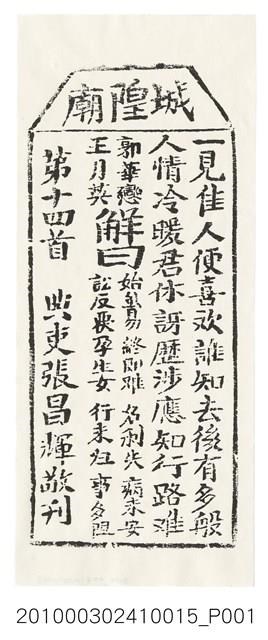 城隍廟
一見佳人便喜欢誰知去後有多般
人情冷暖君休訝歷涉應知行路难
郭華戀
王月英
解曰
始易 終即难 名利失 病未安
訟反喪 孕生女 行未归 事多阻
第十四首 典吏張昌輝敬刊
201000302410015_P001